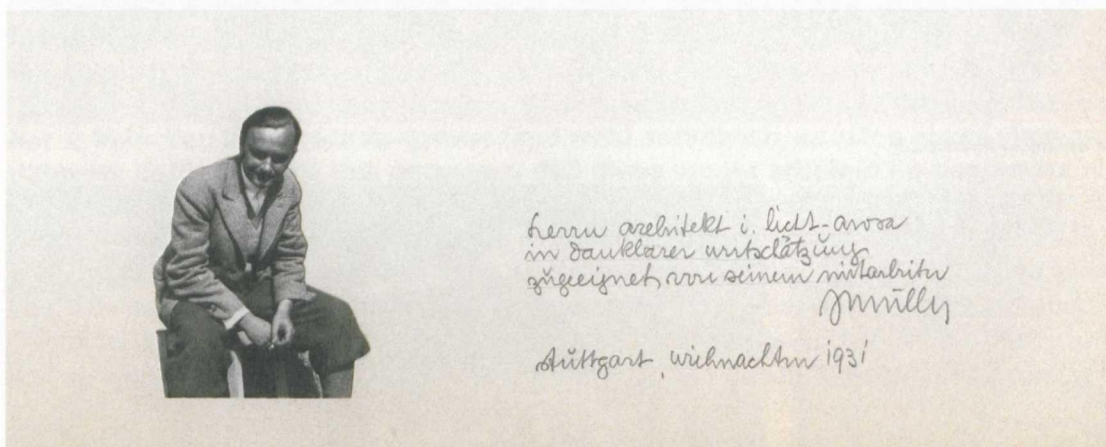 herrn architekt i. licht-arosa
in dankbarer wertschätzung
zugeeignet von seinem mitarbeiter
stuttgart, weihnachten 1931